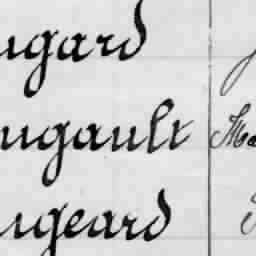 ugard
ugault
ugeard